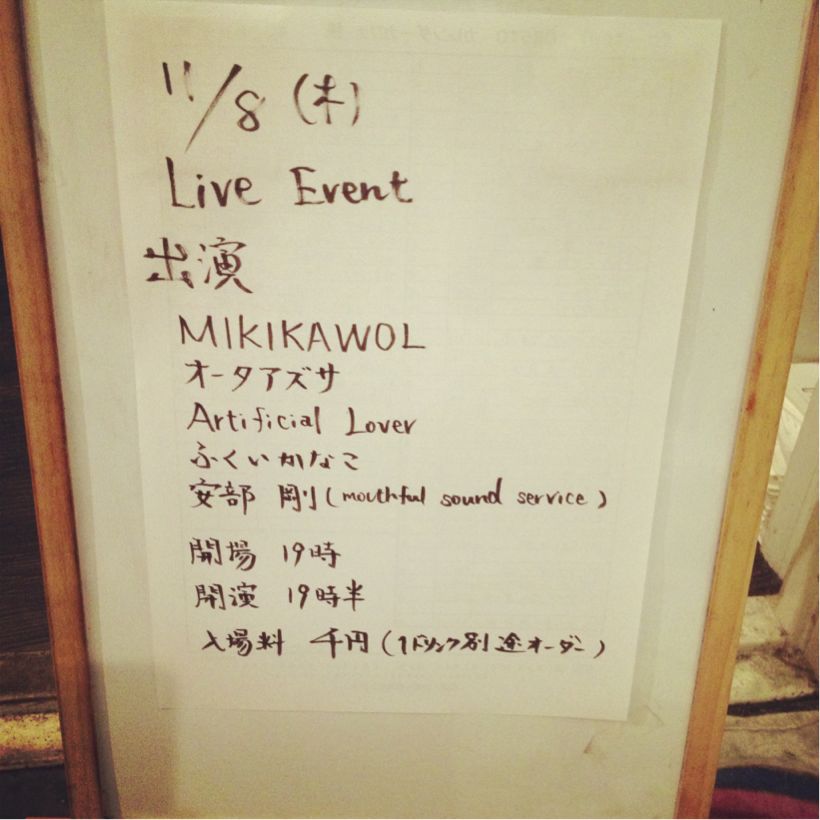 11/8 (木)
Live Event
出演
MIKIKAWOL
オータアズサ
Artificial Lover
ふくいかなこ
安部 剛(mouthful sound service)
開場 19時
開演 19時半
入場料 千円(1ドリンク別途オーダー)